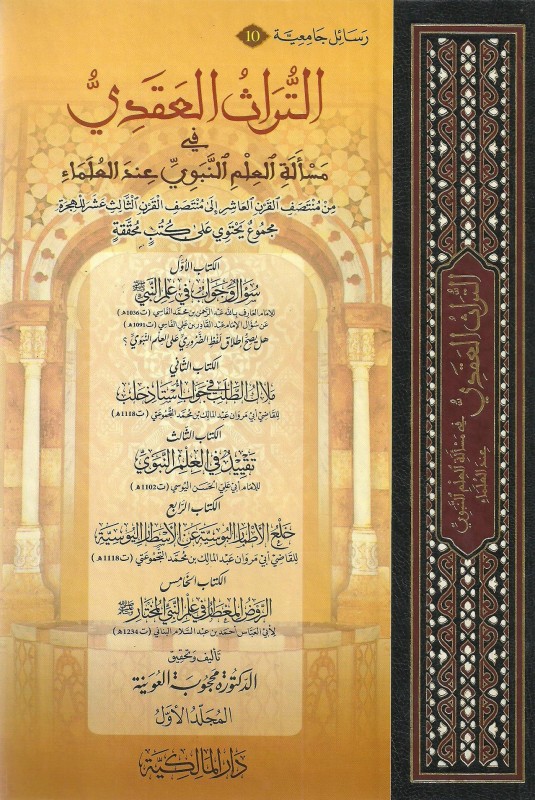 رسائل جامعية 10
التراث العقدي
في
مسألة العلم النبوي عند العلماء
من منتصف القرن العاشر إلى منتصف القرن الثالث عشر للهجرة
مجموع يحتوي على كتب محققة
الكتاب الأول
سؤال وجواب في علم النبي ﷺ
للإمام العارف بالله عبد الرحمن بن محمد الفاسي (ت1036هـ)
عن سؤال الإمام عبد القادر بن علي الفاسي (ت1091هـ)
هل يصح إطلاق لفظ الضروري على العلم النبوي ؟
الكتاب الثاني
ملاك الطلب في جواب أستاذ حلب
للقاضي أبي مروان عبد المالك بن محمد التجموعتي (ت1118هـ)
الكتاب الثالث
تقييد في العلم النبوي
للإمام أبي علي الحسن اليوسي (ت1102هـ)
الكتاب الرابع
خلع الأطمار البوسية عن الأسطار اليوسية
للقاضي أبي مروان عبد المالك بن محمد التجموعتي (ت1118هـ)
الكتاب الخامس
الروض المعطار في علم النبي المختار ﷺ
لأبي العباس أحمد بن عبد السلام البناني (ت1234هـ)
تأليف وتحقيق
الدكتورة محجوبة العوينة
المجلد الأول
دار المالكية
التراث العقدي
في مسألة العلم النبوي
عند العلماء